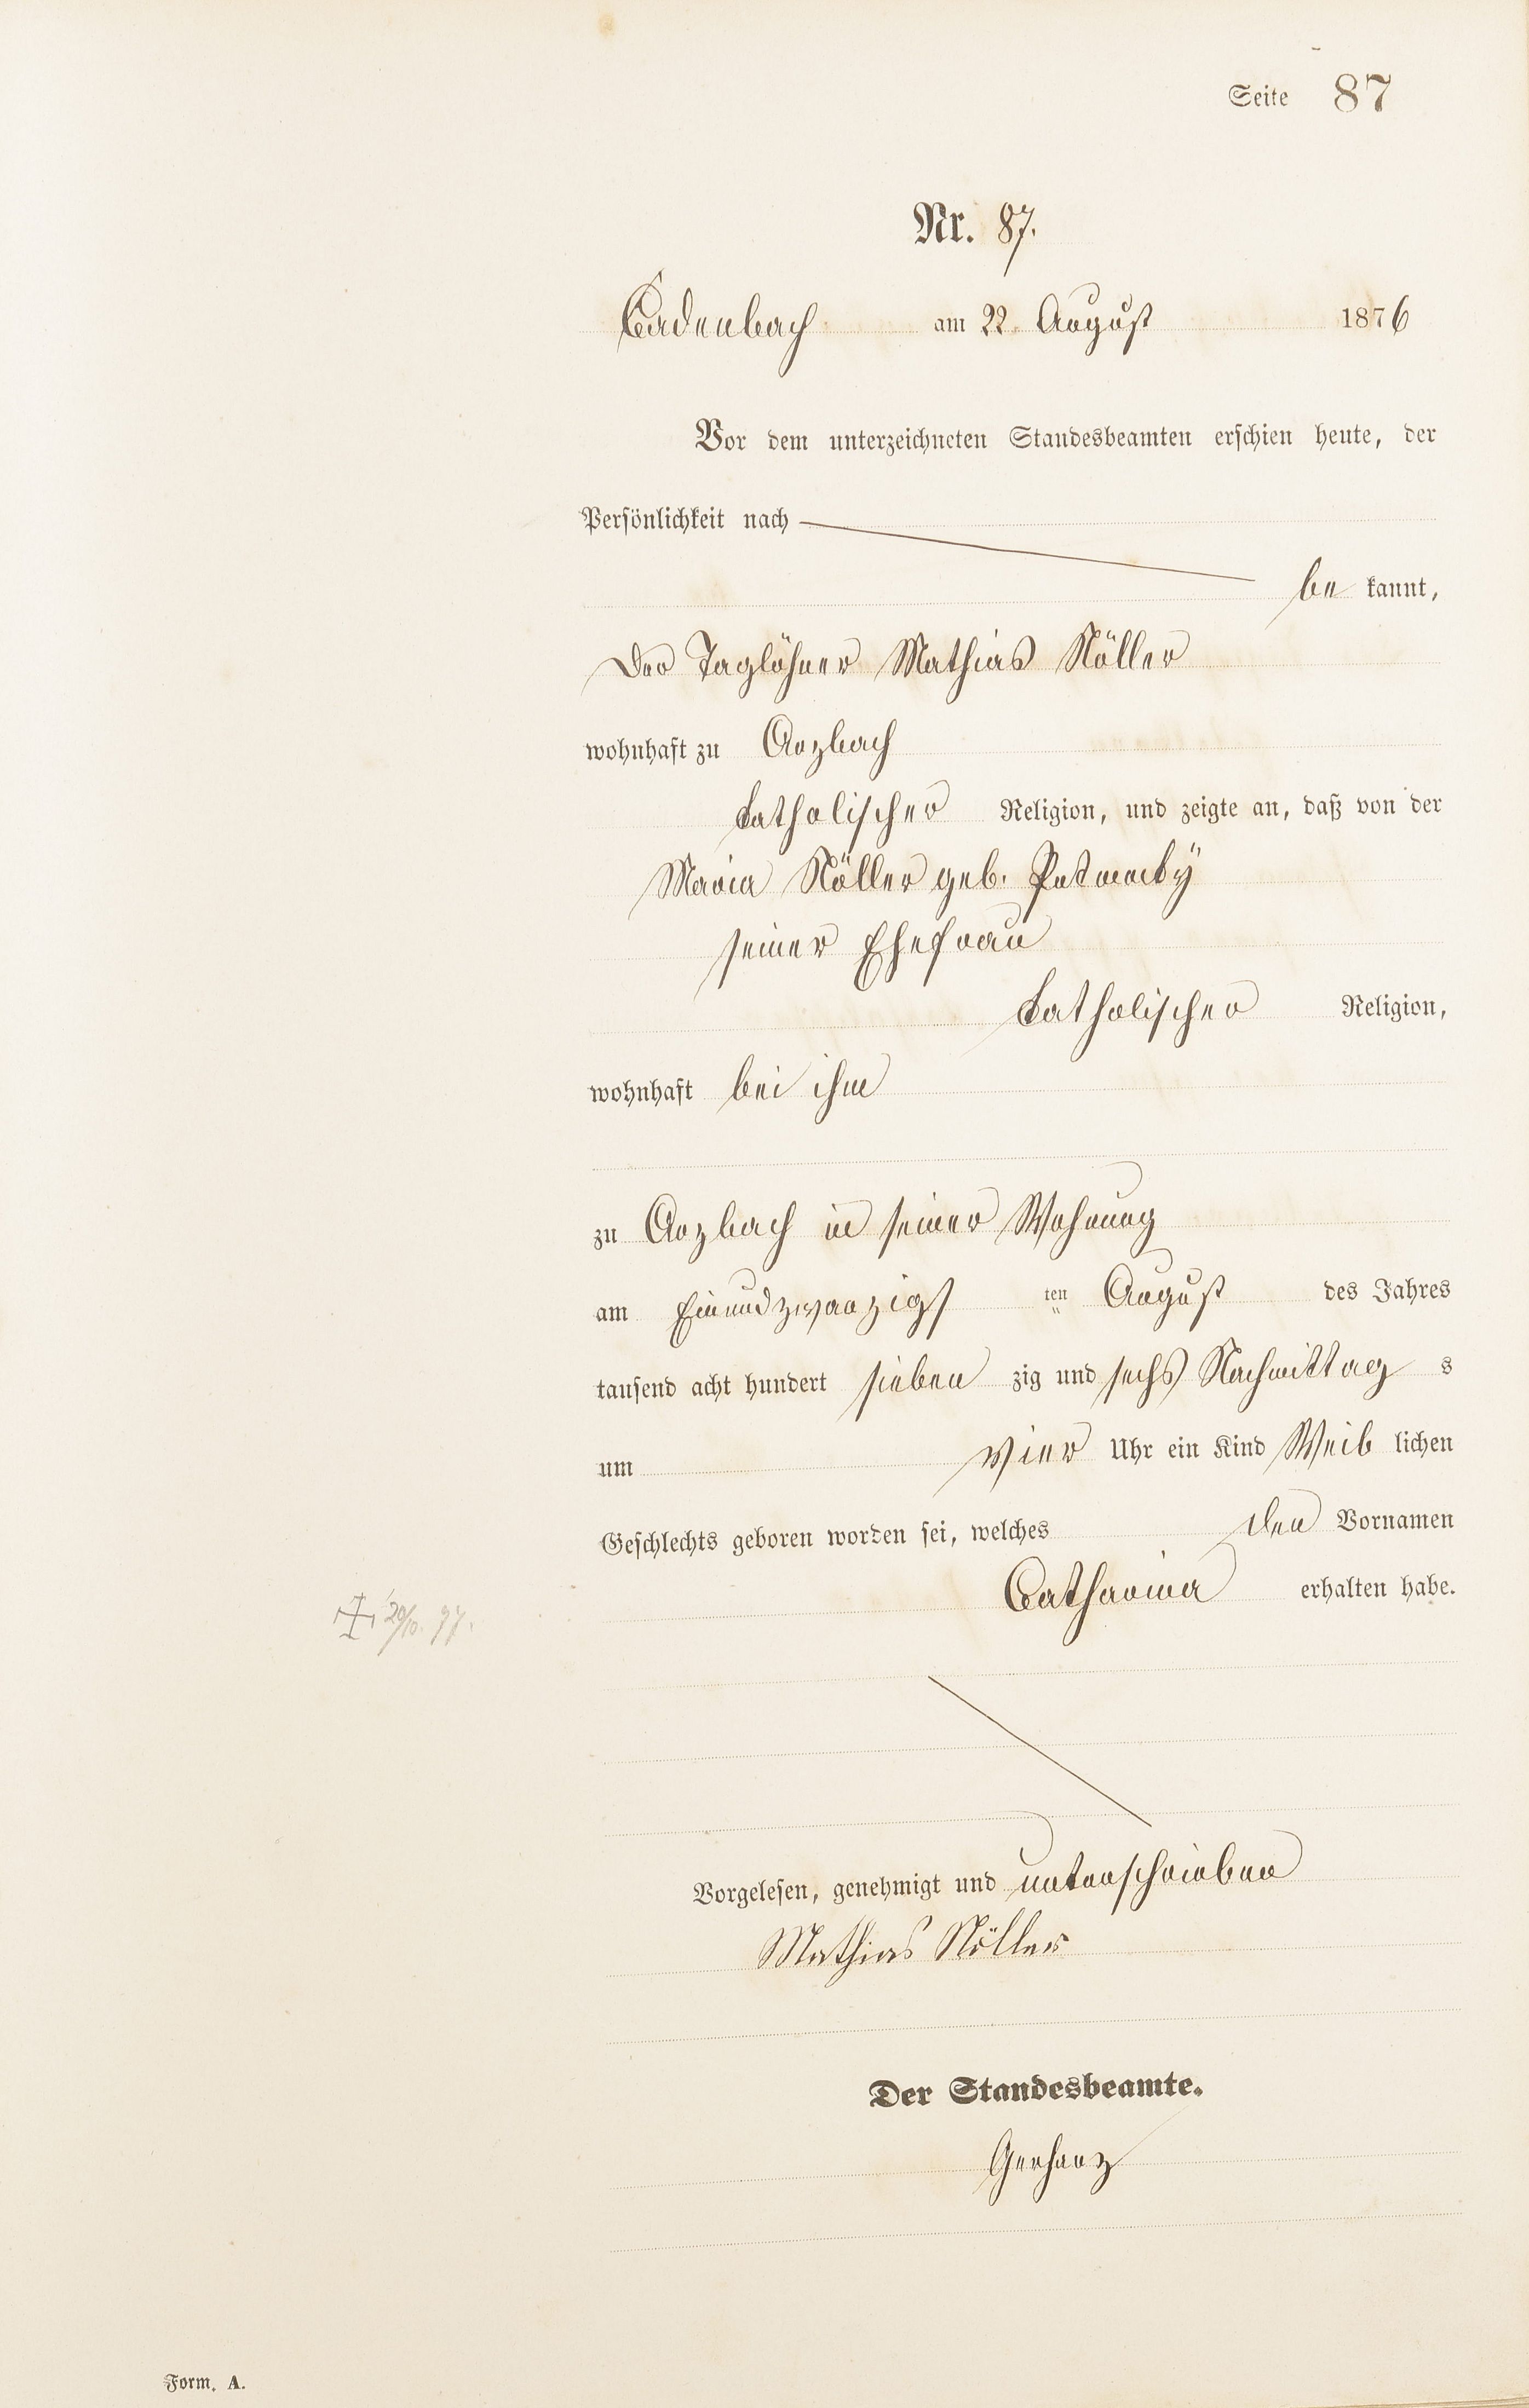 Seite 87
Nr. 87.
Cadenbach am 22. August 1876
Vor dem unterzeichneten Standesbeamten erschien heute, der
Persönlichkeit nach
be kannt,
der Taglöhner Mathias Nöller
wohnhaft zu Arzbach
katholischer Religion, und zeigte an, daß von der
Maria Nöller geb.
seiner Ehefrau
katholischer Religion,
wohnhaft bei ihm
zu Arzbach in seiner Wohnung
am Einundzwanzigs ten August des Jahres
tausend acht hundert sieben zig und sechs Nachmittag s
um vier Uhr ein Kind Weib lichen
Geschlechts geboren worden sei, welches den Vornamen
Catharina erhalten habe.
Vorgelesen, genehmigt und unterschrieben
Mathias Nöller
Der Standesbeamte.
Gerharz
Form. A.